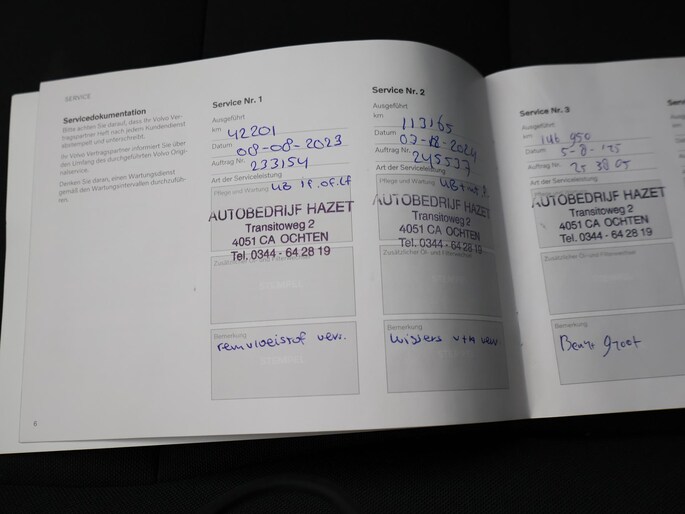 SERVICE
Servicedokumentation
Bitte achten Sie darauf, dass Ihr Volvo Ver-
tragspartner Heft nach jedem Kundendienst
abstempelt und unterschreibt.
Ihr Volvo Vertragspartner informiert Sie über
den Umfang des durchgeführten Volvo Origi-
nalservice.
Denken Sie daran, einen Wartungsdienst
gemäß den Wartungsintervallen durchzufüh-
ren.
6
Service Nr. 1
Ausgeführt
km 42201
Datum 08-08-2023
Auftrag Nr. 233154
Art der Serviceleistung
Pflege und Wartung
AUTOBEDRIJF HAZET
Transitoweg 2
4051 CA OCHTEN
Tel. 0344 - 64 28 19
Bemerkung
remvloeistof verv.
Service Nr. 2
Ausgeführt
km 113165
Datum 2024
Auftrag Nr. 245537
Art der Serviceleistung
Pflege und Wartung
AUTOBEDRIJF HAZET
Transitoweg 2
4051 CA OCHTEN
Tel. 0344 - 64 28 19
Zusätzlicher Öl- und Filterwechsel
Bemerkung
wissers
Service Nr. 3
Ausgeführt
km 146 950
Datum 5-8-'25
Auftrag Nr. 25 38 05
Art der Serviceleistung
AUTOBEDRIJF HAZET
Transitoweg 2
4051 CA OCHTEN
Tel. 0344 - 64 28 19
Zusätzlicher Öl- und Filterwechsel
Bemerkung
Beurt groot